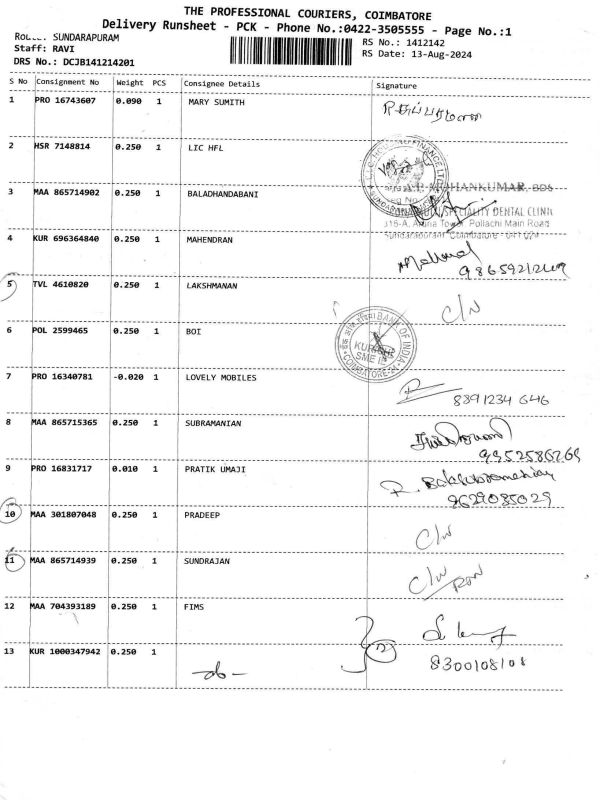 THE PROFESSIONAL COURIERS, COIMBATORE
Delivery Runsheet - PCK - Phone No.:0422-3505555 - Page No.:1
SUNDARAPURAM
RS No.: 1412142
Staff: RAVI
RS Date: 13-Aug-2024
DRS No.: DCJB141214201
S No Consignment No Weight PCS Consignee Details Signature
1 PRO 16743607 0.090 1 MARY SUMITH
2 HSR 7148814 0.250 1 LIC HFL
3 MAA 865714902 0.250 1 BALADHANDABANI
MOHANKUMAR, BDS
SPECIALITY DENTAL CLINIC
Pollachi Main Road
4 KUR 696364840 0.250 1 MAHENDRAN
5 TVL 4610820 0.250 1 LAKSHMANAN C/N
6 POL 2599465 0.250 1 BOI
BANK OF INDIA
SME
COIMBATORE
7 PRO 16340781 -0.020 1 LOVELY MOBILES
8891234 646
8 MAA 865715365 0.250 1 SUBRAMANIAN
9 PRO 16831717 0.010 1 PRATIK UMAJI
9629085029
10 MAA 301807048 0.250 1 PRADEEP C/N
11 MAA 865714939 0.250 1 SUNDRAJAN C/N
12 MAA 704393189 0.250 1 FIMS
13 KUR 1000347942 0.250 1
2
8300108108